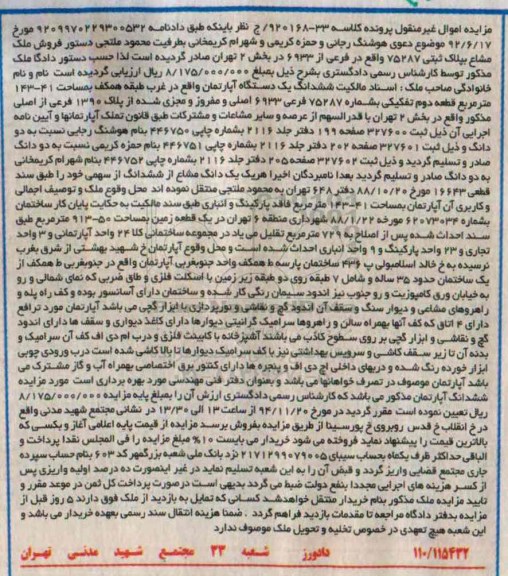 مزایده اموال غیرمنقول پرونده کلاسه ۳۳-۹۲۰۱۶۸/ج نظر باینکه طبق دادنامه ۹۲۰۹۹۷۰۲۲۹۳۰۰۵۳۲ مورخ
۹۲/۶/۱۷ موضوع دعوی هوشنگ رجائی و حمزه کریمی و شهرام کریمخانی بطرفیت محمود ملتجی دستور فروش ملک
مشاع بپلاک ثبتی ۷۵۲۸۷ واقع در فرعی از ۶۹۳۳ در بخش ۲ تهران صادر گردیده است لذا حسب دستور دادگاه ملک
مذکور توسط کارشناس رسمی دادگستری بشرح ذیل بمبلغ ۸/۱۷۵/۰۰۰/۰۰۰ ریال ارزیابی گردیده است نام و نام
خانوادگی صاحب ملک: اسناد مالکیت ششدانگ یک دستگاه آپارتمان واقع در غرب طبقه همکف بمساحت ۱۴۳-۴۱
مترمربع قطعه دوم تفکیکی بشماره ۷۵۲۸۷ فرعی ۶۹۳۳ اصلی و مفروز و مجزی شده از پلاک ۱۳۹۰ فرعی از اصلی
مذکور واقع در بخش ۲ تهران با قدرالسهم از عرصه و سایر مشاعات و مشترکات طبق قانون تملک آپارتمانها و آیین نامه
اجرایی آن ذیل ثبت ۳۲۷۶۰۰ صفحه ۱۹۹ دفتر جلد ۲۱۱۶ بشماره چاپی ۴۴۶۷۵۰ بنام هوشنگ رجایی نسبت به دو
دانگ و ذیل ثبت ۳۲۷۶۰۱ صفحه ۲۰۲ دفتر جلد ۲۱۱۶ بشماره چاپی ۴۴۶۷۵۱ بنام حمزه کریمی نسبت به دو دانگ
صادر و تسلیم گردید و ذیل ثبت ۳۲۷۶۰۲ صفحه ۲۰۵ دفتر جلد ۲۱۱۶ بشماره چاپی ۴۴۶۷۵۲ بنام شهرام کریمخانی
به دو دانگ صادر و تسلیم گردید بعدا نامبردگان اخیرا هریک یک دانگ مشاع از ششدانگ از سهمی خود را طبق سند
قطعی ۱۶۶۴۳ مورخ ۸۸/۱۰/۲۰ دفتر ۶۴۸ تهران به محمود ملتجی منتقل نموده اند محل وقوع ملک و توصیف اجمالی
و کاربری آن آپارتمان بمساحت ۱۴۳-۴۱ مترمربع فاقد پارکینگ و انباری طبق سند مالکیت به حکایت پایان کار ساختمان
بشماره ۶۲۰۷۳۰۳۴ مورخه ۸۸/۱/۲۲ شهرداری منطقه ۶ تهران در یک قطعه زمین بمساحت ۹۱۳-۵۰ مترمربع طبق
سند احداث شده پس از اصلاح به ۷۲۹ مترمربع تقلیل می یاد در مجموعه ساختمانی کلا ۲۴ واحد آپارتمانی و ۳ واحد
تجاری و ۲۳ واحد پارکینگ و ۹ واحد انباری احداث شده است و محل وقوع آپارتمان خ شهید بهشتی از شرق بغرب
نرسیده به خ خالد اسلامبولی پ ۴۳۶ ساختمان پارسه ط همکف واحد جنوبغربی آپارتمان واقع در جنوبغربی ط همکف از
یک ساختمان حدود ۳۵ ساله و شامل ۷ طبقه روی دو طبقه زیر زمین با اسکلت فلزی و طاق ضربی که نمای شمالی و رو
به خیابان ورق کامپوزیت و رو جنوب نیز اندود سیمان رنگی کار شده و ساختمان دارای آسانسور بوده و کف راه پله و
راهروهای مشاعی و دیوار سنگ و سقف آن اندود گچ و نقاشی و نورپردازی با ابزار گچی می باشد آپارتمان مورد ترافع
دارای ۴ اتاق که کف آنها بهمراه سالن و راهروها سرامیک گرانیتی دیوارها دارای کاغذ دیواری و سقف ها دارای اندود
گچ و نقاشی و ابزار گچی بر روی سطوح کاذب می باشند آشپزخانه با کابینت فلزی و درب ام دی اف کف آن سرامیک و
بدنه آن تا زیر سقف کاشی و سرویس بهداشتی نیز با کف سرامیک دیوارها تا بالا کاشی شده است درب ورودی چوبی
ابزار خورده رنگ شده و دربهای داخلی اچ دی اف و پنجره ها دارای کنتور برق اختصاصی بهمراه آب و گاز مشترک می
باشد آپارتمان موصوف در تصرف خواهانها می باشد و بعنوان دفتر فنی مهندسی مورد بهره برداری است مورد مزایده
ششدانگ آپارتمان مذکور می باشد که کارشناس رسمی دادگستری ارزش آن را بمبلغ پایه مزایده ۸/۱۷۵/۰۰۰/۰۰۰
ریال تعیین نموده است مقرر گردید در مورخ ۹۴/۱۱/۲۰ از ساعت ۱۳ الی ۱۳/۳۰ در نشانی مجتمع شهید مدنی واقع
در خ انقلاب خ قدس روبروی خ پورسینا از طریق مزایده بفروش برسد مزایده از قیمت پایه اعلامی آغاز و بکسی که
بالاترین قیمت را پیشنهاد نماید فروخته می شود خریدار می بایست ۱۰% مبلغ مزایده را فی المجلس نقدا پرداخت و
الباقی حداکثر ظرف یکماه بحساب سپبای ۲۱۷۱۲۹۹۰۷۹۰۰۵ نزد بانک ملی شعبه بزرگمهر کد ۶۰۳ بنام حساب سپرده
جاری مجتمع قضایی واریز گردد و قبض آن را به این شعبه تسلیم نماید در غیر اینصورت ده درصد اولیه واریزی پس
از کسر هزینه های اجرایی مجددا بنفع دولت ضبط می گردد بدیهی است درصورت پرداخت کل ثمن در موعد مقرر و
تایید مزایده ملک مذکور بنام خریدار منتقل خواهد شد کسانی که تمایل به بازدید از ملک فوق دارند ۵ روز قبل از
مزایده بدفتر دادگاه مراجعه تا مقدمات بازدید فراهم گردد . ضمنا هزینه انتقال سند رسمی بعهده خریدار می باشد و
این شعبه هیچ تعهدی در خصوص تخلیه و تحویل ملک موصوف ندارد
۱۱۰/۱۱۵۴۳۲ دادورز شعبه ۳۳ مجتمع شهید مدنی تهران